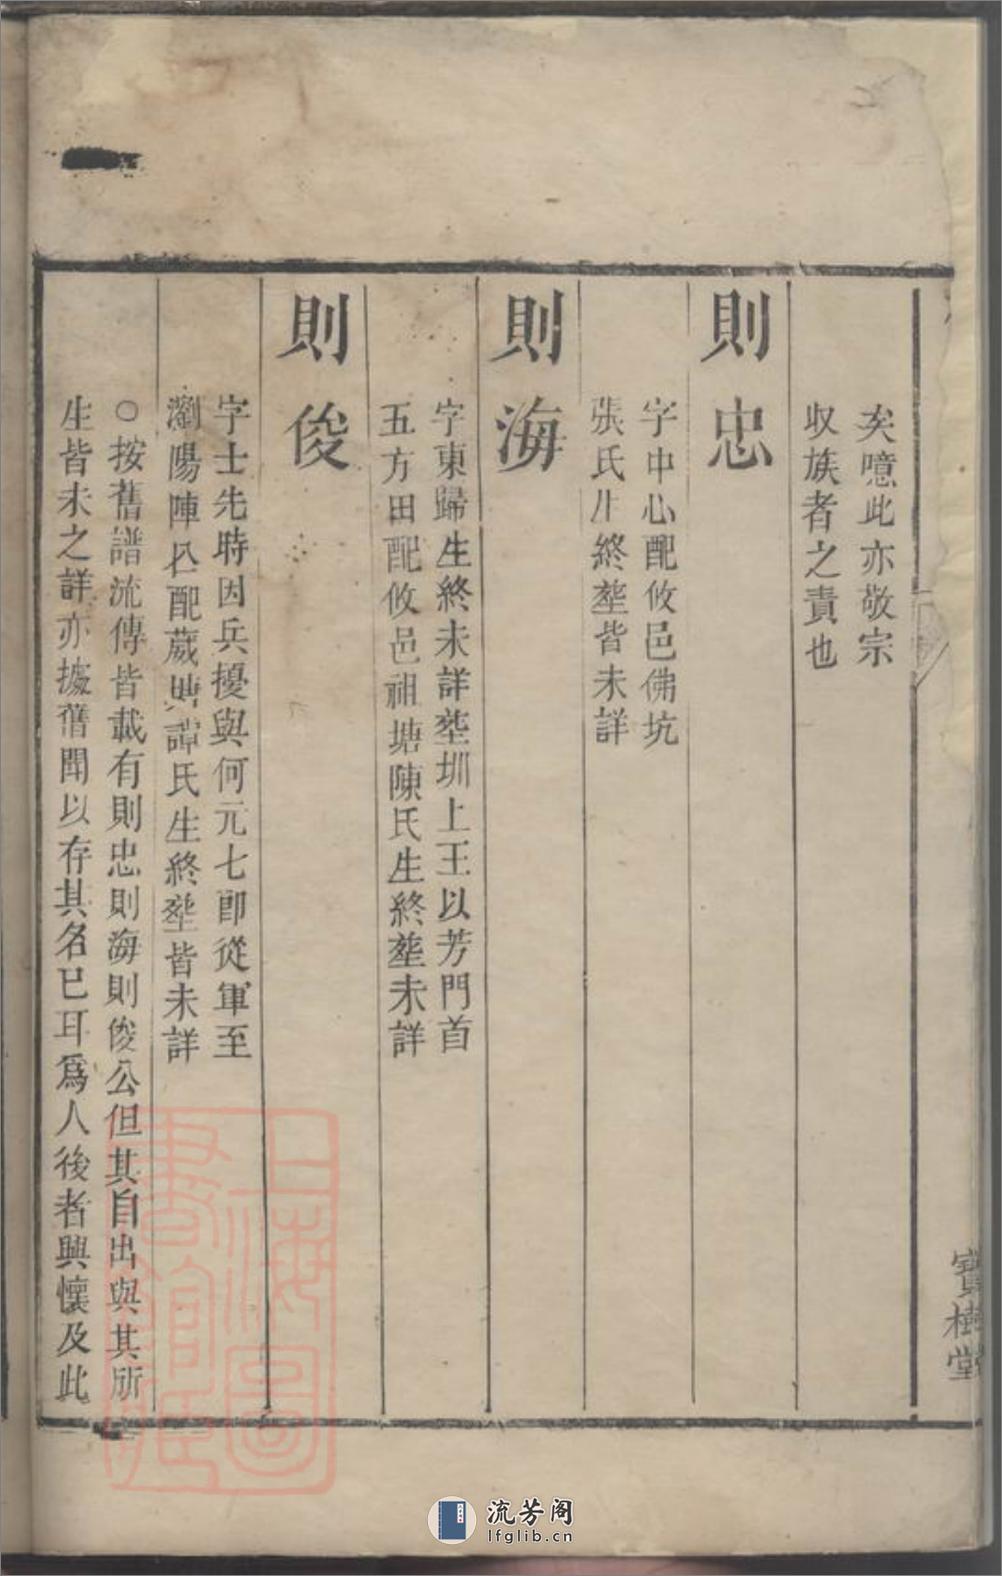 矣噫此亦敬宗
収族者之責也
則忠
字中心配攸邑佛坑
張氏生終塟皆未詳
則海
字東歸生終未詳塟圳上王以芳門首
五方田配攸邑祖塘陳氏生終塟未詳
則俊
字士先時因兵擾與何元七郎從軍至
瀏陽陣亾配蕆塘譚氏生終塟皆未詳
○按舊譜流傳皆載有則忠則海則俊公但其自出與其所
生皆未之詳亦據舊聞以存其名已耳爲人後者興懷及此
寶樹堂
上海圖書館藏
流芳阁
lfglib.cn